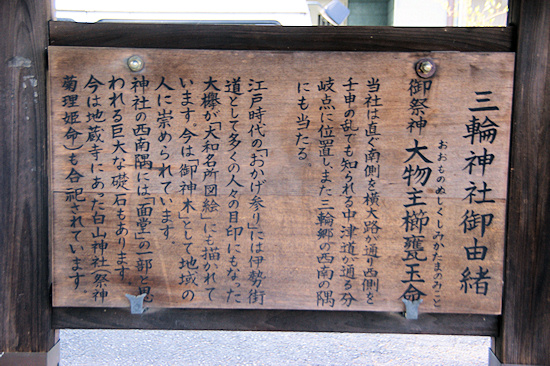 三輪神社御由緒
おおものぬしくしみかたまのみこと
御祭神 大物主櫛甕玉命
当社は直ぐ南側を横大路が通り西側を
壬申の乱でも知られる中津道が通る分
岐点に位置し、また三輪郷の西南の隅
にも当たる。
江戸時代の「おかげ参り」には伊勢街
道として多くの人々の目印にもなった
大欅が「大和名所図絵」にも描かれて
います。今は御神木」として地域の
人に崇められています。
神社の西南隅には「面堂」の一部と思
われる巨大な礎石もあります。
今は地蔵寺にあった白山神社(祭神
菊理姫命)も合祀されています。